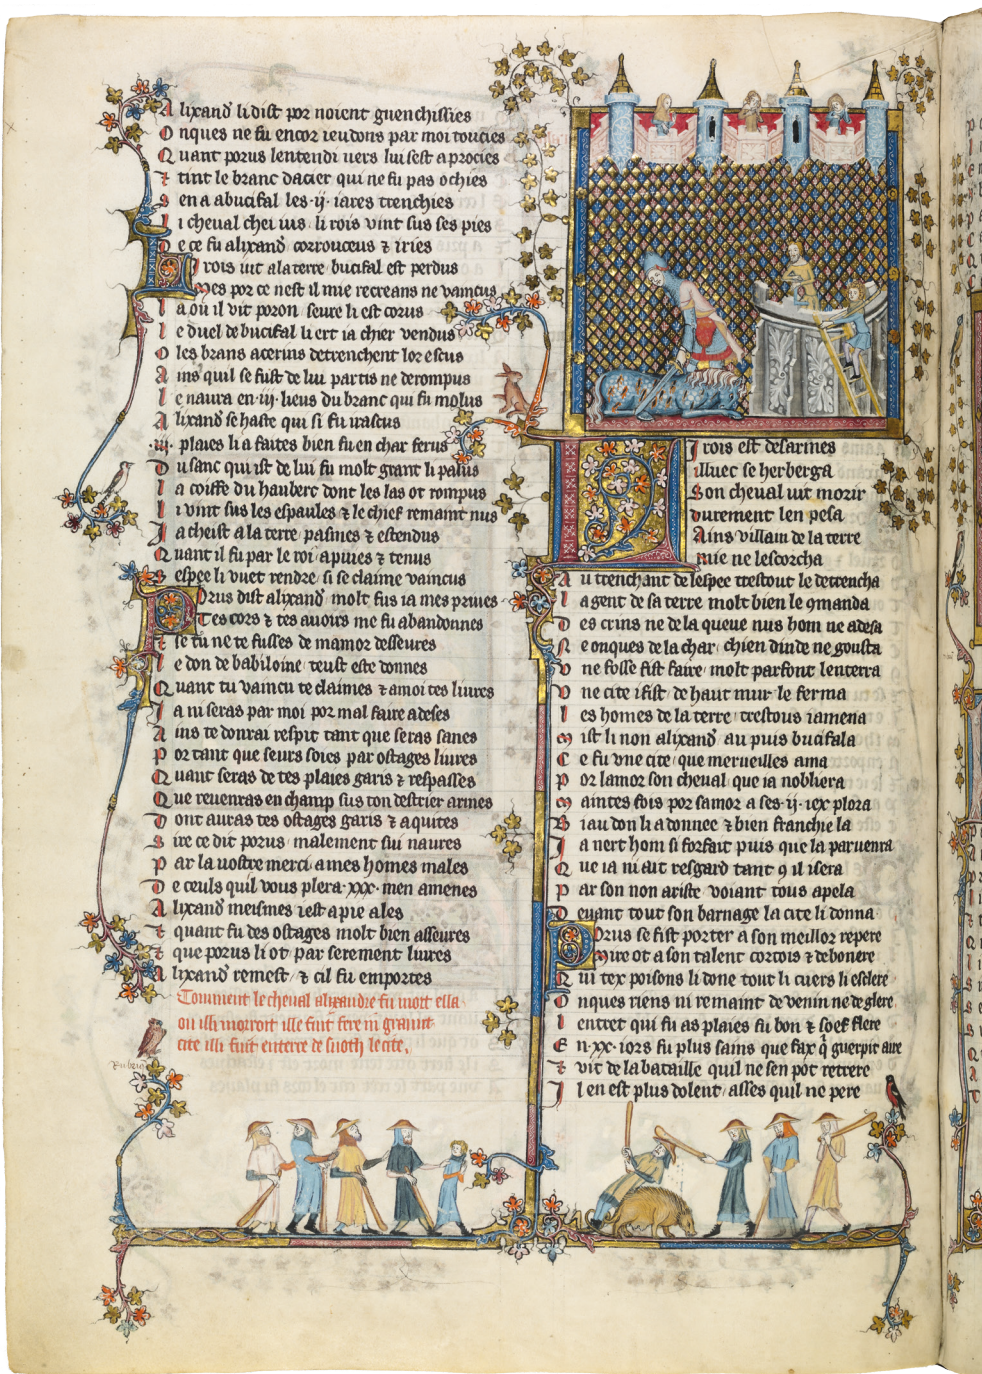 Alixand' li dist por noient guenchissies
Onques ne fu encor ieudons par moi toucies
Quant porus lentendi uers lui sest aprocies
⁊ tint le branc dacier qui ne fu pas ochies
sen a abucifal les .ij. iares trenchies
li cheval chei ius li rois vint sus ses pies
De ce fu alixand' corrouceus ⁊ iries
Li rois uit a la terre bucifal est perdus
Mes por ce nest il mie recreans ne vaincus
la ou il vit poron seure li est corus
le duel de bucifal li ert ia cher vendus
o les brans acerins detrenchent lor escus
Ains quil se fust de lui partis ne derompus
le naura en .iij. lieus du branc qui fu molus
Alixand' se haste qui si fu irascus
.iij. plaies li a faites bien fu en char ferus
Du sanc qui ist de lui fu molt grant li palus
la coiffe du hauberc dont les las ot rompus
li vint sus les espaules ⁊ le chief remaint nus
Ja cheist a la terre pasmes ⁊ estendus
Quant il fu par le roi apuies ⁊ tenus
sespee li vuet rendre si se claime vaincus
Porus dist alixand' molt fus ia mes priues
Tes cors ⁊ tes auoirs me fu abandonnes
⁊ se tu ne te fusses de mamor desseures
le don de babiloine teust este donnes
Quant tu vaincu te claimes ⁊ a moi tes liures
Ja ni seras par moi por mal faire adeses
Ains te donrai respit tant que seras sanes
Portant que seurs soies par ostages liures
Quant seras de tes plaies garis ⁊ respasses
Que reuenras en champ sus ton destrier armes
Dont auras tes ostages garis ⁊ aquites
Sire ce dit porus malement sui naures
Par la uostre merci a mes homes males
De ceuls quil vous plera .xxx. men amenes
Alixand' meismes iest a pie ales
⁊ quant fu des ostages molt bien asseures
⁊ que porus li ot par serement liures
Alixand' remest ⁊ cil fu emportes
Comment le cheval alixandre fu mort ella
ou issi morront ille fuit fere
cite illi fuit enterre de le cite.
Li rois est desarmes
illuec se herberga
Son cheval uit morir
durement len pesa
Ains villain de la terre
mie ne lescorcha
Au trenchant de lespee trestout le detrencha
la gent de sa terre molt bien le 9manda
Des crins ne de la queue nus hom ne adesa
Ne onques de la char chien dinde ne gousta
vne fosse fist faire molt parfont lenterra
Vne cite i fist de haut mur le ferma
les homes de la terre trestous i amena
Mist li non alixand' au puis bucifala
Ce fu vne cite que merueilles ama
Por lamor son cheval que ia nobliera
Maintes fois por samor a ses .ij. iex plora
Biau don li a donnee ⁊ bien franchie la
Ja nert hom si forfait puis que la paruenra
Que ia ni ait resgard tant 9 il i sera
Par son non ariste voiant tous apela
Deuant tout son barnage la cite li donna
Porus se fist porter a son meillor repere
Mire ot a son talent cortois ⁊ debonere
Qui tex poisons li done tout li cuers li esclere
Onques riens ni remaint de venin ne de glere
lentret qui fu as plaies fu bon ⁊ soef flere
En .xx. iors fu plus sains que fax q' guerpit aire
⁊ vit de la bataille quil ne sen pot retrere
Il en est plus dolent asses quil ne pere